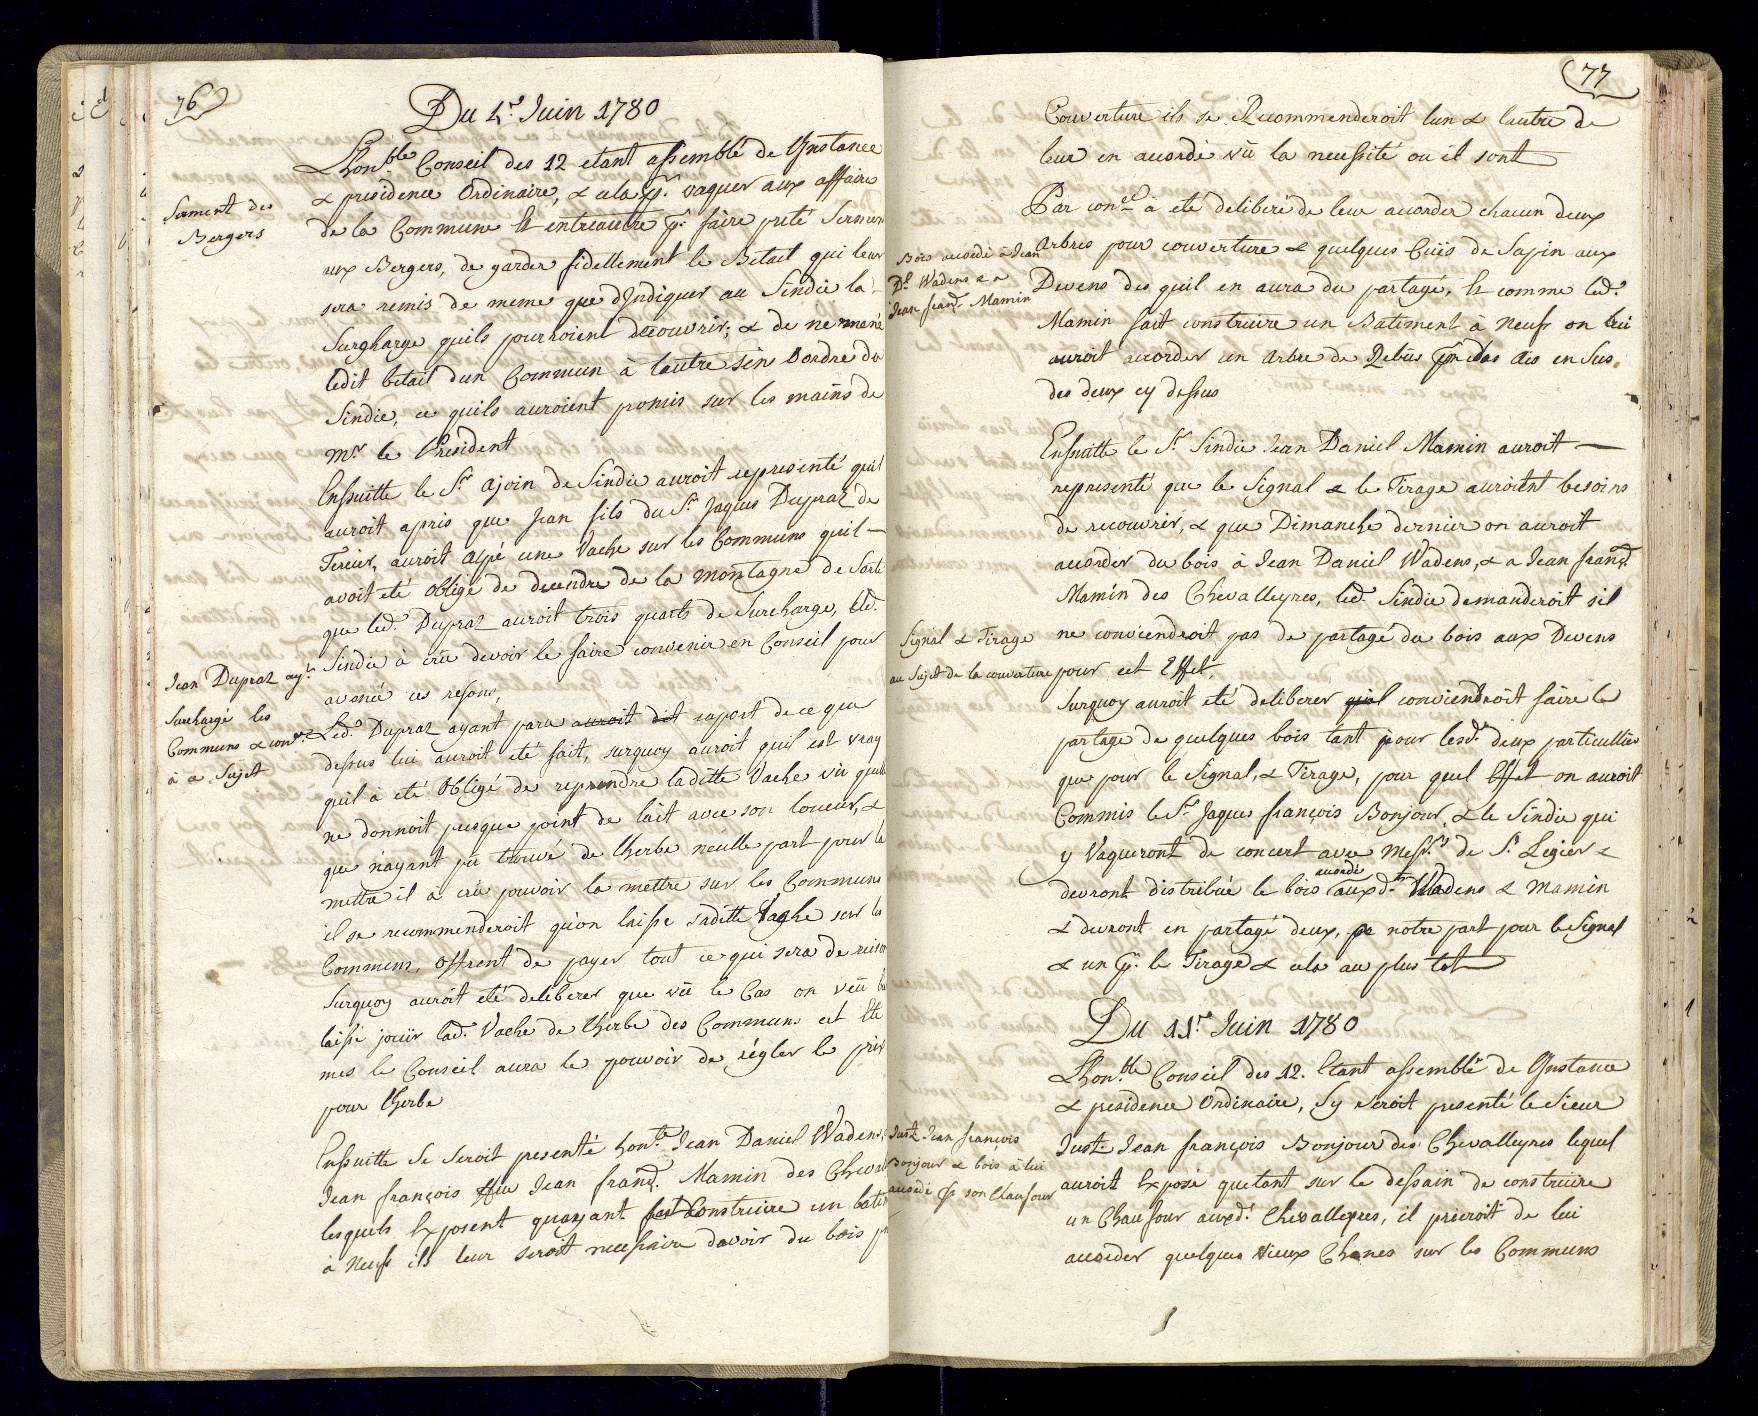 76
Du 1.r Juin 1780
Lhon.ble Conseil des 12 etant assemblé de Ynstance
& presidence Ordinaire, & cela p.r vaquer aux affaire
Serment des
Bergers
de la Commune Et entreautre p.r faire preté Sermen
aux Bergers, de garder fidellement le Betail qui leur
sera remis de meme que dYndiquer au Sindic la
Surgharge quils pourroient decouvrir; & de ne mené
ledit betail dun Commun à lautre sens Lordre du
Sindic, ce quils auroient promis sur les mains de
Mr. le President
Ensuitte le Sr. ajoin de Sindic auroit representé quil
auroit apris que Jean fils du Sr. Jaques Dupraz de
Tercier, auroit alpé une Vache sur les Communs quil
avoit eté obligé de decendre de la montagne de Sorte
que led.t Dupraz auroit trois quarts de Surcharge, led.
Sindic à crû devoir le faire convenir en Conseil pour
Jean Dupraz ay.t
Surchargé les
Communs & con
à ce Sujet
avancé ces resons,
Led.t Dupraz ayant paru auroit dit raport de ce que
dessus lui auroit eté fait, surquoy auroit quil est vray
quil à eté Obligé de reprendre laditte Vache vû quelle
ne donnoit presque point de lait avec son loueur, &
que nayant pû trouvé de lherbe neulle part pour la
mettre il a crû pouvoir la mettre sur les Communs
il se recommenderoit quon laisse saditte Vache sur les
Communs, offrent de payer tout ce qui sera de reison
Surquoy auroit eté deliberer que vû le Cas on veut
laissé jouir lad.t Vache de lherbe des Communs cet Eté
mes le Conseil aura le pouvoir de régler le prix
pour lherbe
Ensuitte Se Seroit presenté hon.te Jean Daniel Wadens
Jean françois ffeu Jean fran. Mamin des Cheval
lesquels Exposent quayant fait Construire un bati
à Neuf ils leur seroit necessaire davoir du bois p
77
Couverture ils se Recommenderoit lun & lautre de
leur en accordé vû la necessité ou il sont
Par con.el à eté deliberé de leur accorder chacun deux
Bois accordé à Jean
D.l Wadens & a
Jean fran. Mamin
Arbres pour couverture & quelques Cuis de Sapin aux
Devens des quil en aura du partagé, Et comme led.t
Mamin fait construire un Batiment à Neuf on lui
auroit accorder un Arbre de Rebus p.r des Ais en Sus
des deux cy dessus
Ensuitte le Sr. Sindic Jean Daniel Mamin auroit
representé que le Signal & le Tirage auroient besoins
de recouvrir, & que Dimanche dernier on auroit
accorder du bois à Jean Daniel Wadens, & a Jean fran.
Mamin des Chevalleyres, led.t Sindic demanderoit sil
Signal & Tirage
au Sujet de la couverture
ne conviendroit pas de partagé du bois aux Devens
pour cet Effet,
Surquoy auroit eté deliberer quil conviendroit faire le
partage de quelques bois tant pour lesd.ts deux particullies
que pour le Signal, & Tirage, pour quel Effet on auroit
Commis le Sr. Jaques françois Bonjour, & le Sindic qui
y Vaqueront de concert avec Mess.rs de St. Legier &
devront distribué le bois accordé auxd.ts Wadens & Mamin
& devront en partagé deux, pr notre part pour le Signal
& un p.r le Tirage & cela au plus tot
Du 11.r Juin 1780
Lhon.ble Conseil des 12. Etant assemblé de Ynstance
& presidence Ordinaire, Sy seroit presenté le Sieur
Just. Jean françois
Bonjour & bois à lui
accordé p.r son Chaufour
Just. Jean françois Bonjour des Chevalleyres lequel
auroit Exposé quetant sur le dessain de construire
un Chaufour auxd.t Chevalleyres, il prieroit de lui
accorder quelques vieux Chenes sur les Communs